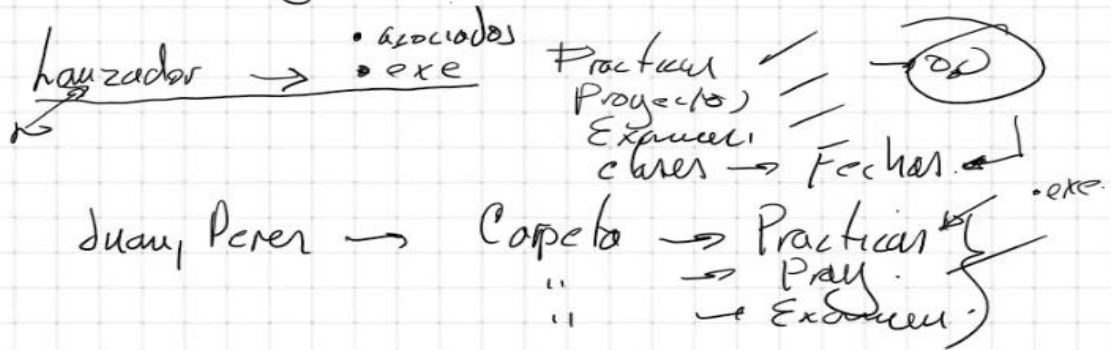 • asociados
Lanzador → • exe
Practicas
Proyectos
Examen.
clases → Fechas.
.exe.
Juan, Perez → Carpeta → Practicas
" → Proy.
" → Examen.